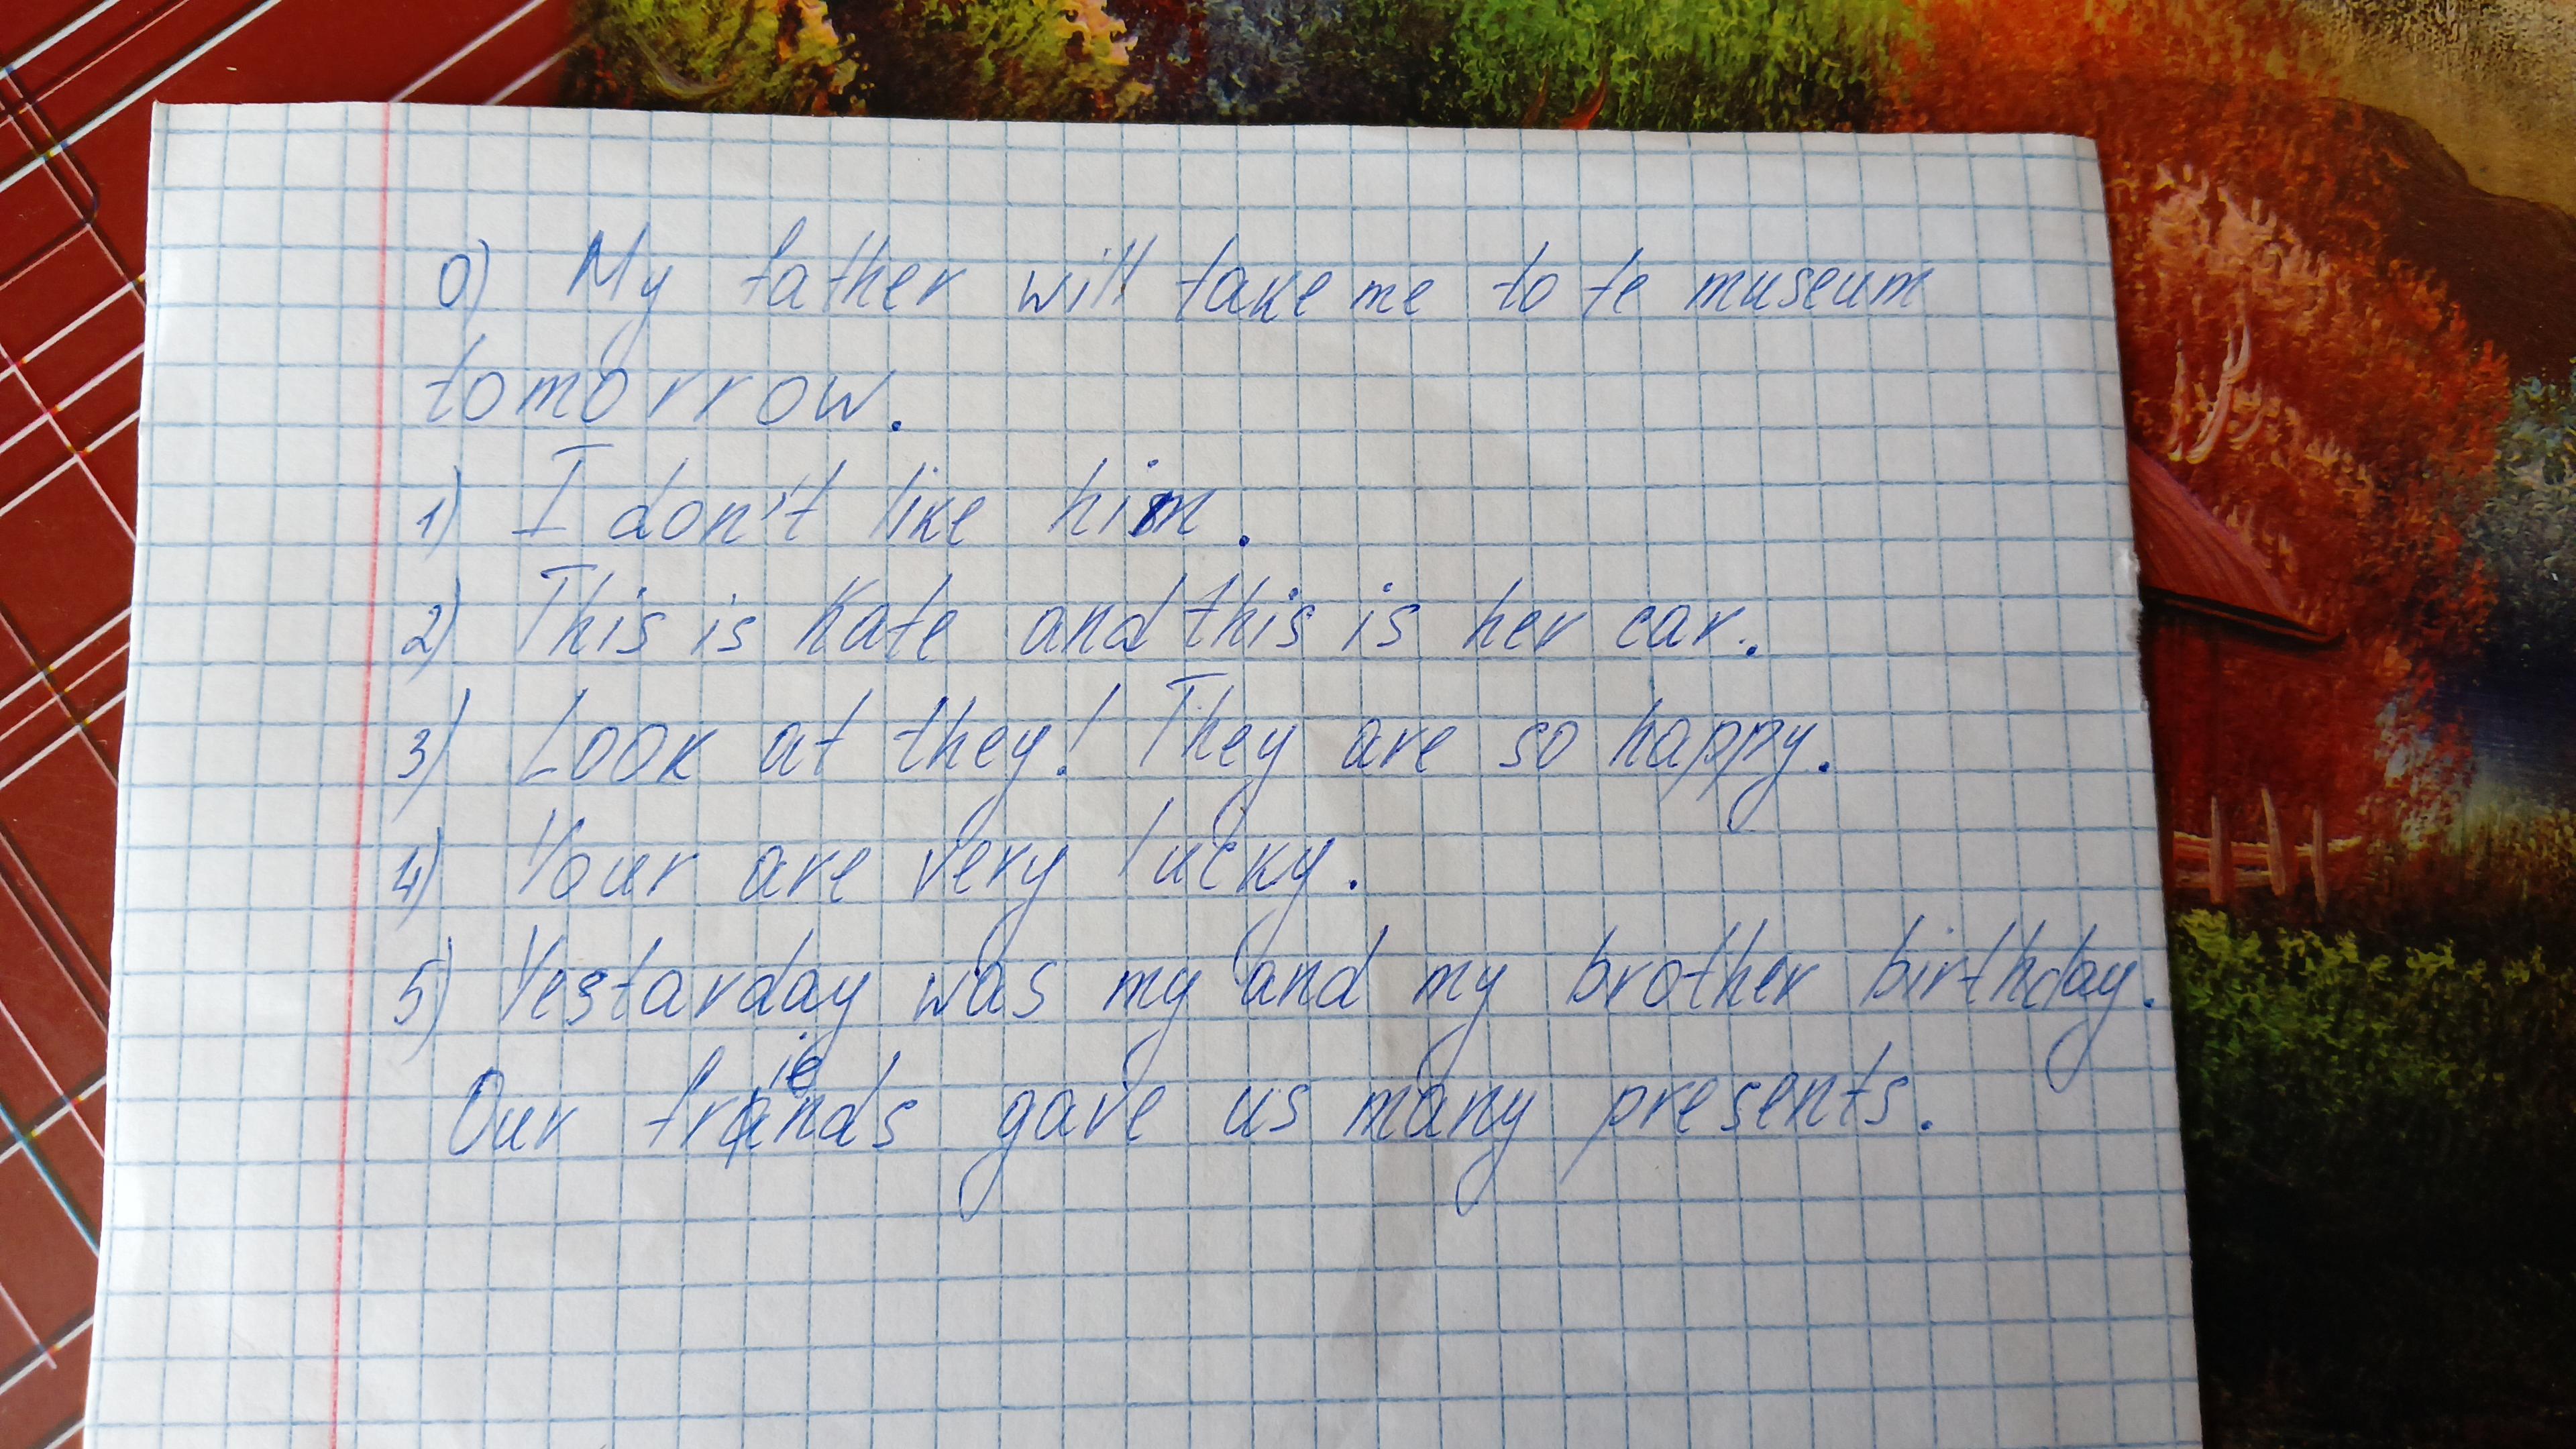 0) My father will take me to te museum
tomorrow.
1) I don't like him.
2) This is Kate and this is her car.
3) Look at they! They are so happy.
4) Your are very lucky.
5) Yestarday was my and my brother birthday.
Our friends gave us many presents.